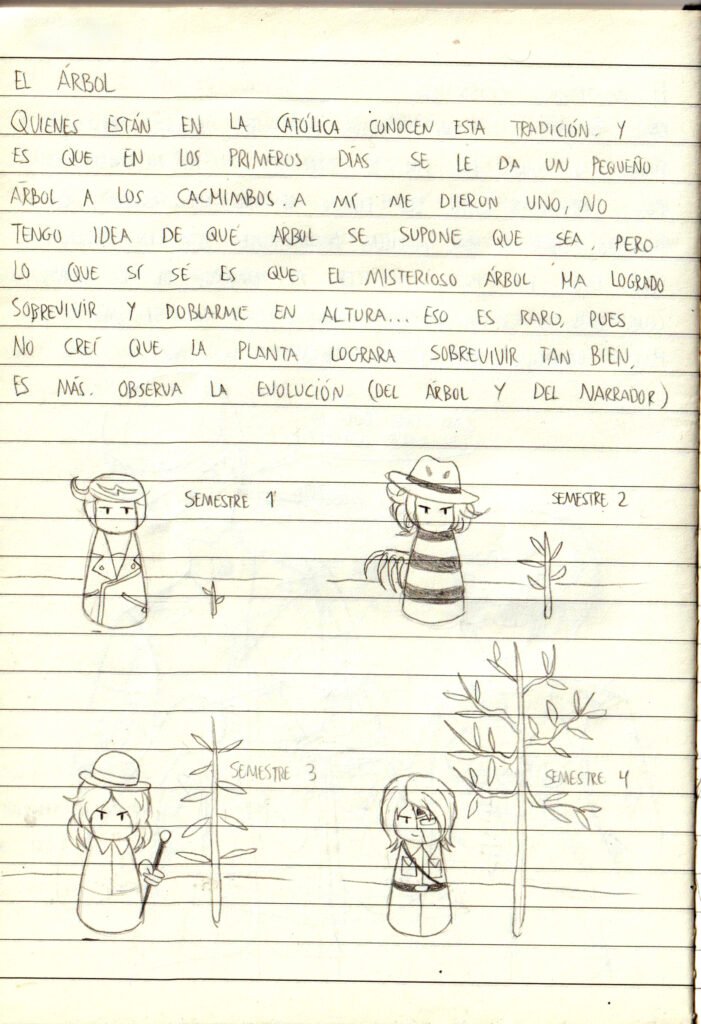 EL ÁRBOL
QUIENES ESTÁN EN LA CATÓLICA CONOCEN ESTA TRADICIÓN. Y
ES QUE EN LOS PRIMEROS DÍAS SE LE DA UN PEQUEÑO
ÁRBOL A LOS CACHIMBOS. A MÍ ME DIERON UNO, NO
TENGO IDEA DE QUÉ ARBOL SE SUPONE QUE SEA, PERO
LO QUE SÍ SÉ ES QUE EL MISTERIOSO ÁRBOL HA LOGRADO
SOBREVIVIR Y DOBLARME EN ALTURA... ESO ES RARO, PUES
NO CREÍ QUE LA PLANTA LOGRARA SOBREVIVIR TAN BIEN.
ES MÁS. OBSERVA LA EVOLUCIÓN (DEL ÁRBOL Y DEL NARRADOR)
SEMESTRE 1
SEMESTRE 2
SEMESTRE 3
SEMESTRE 4